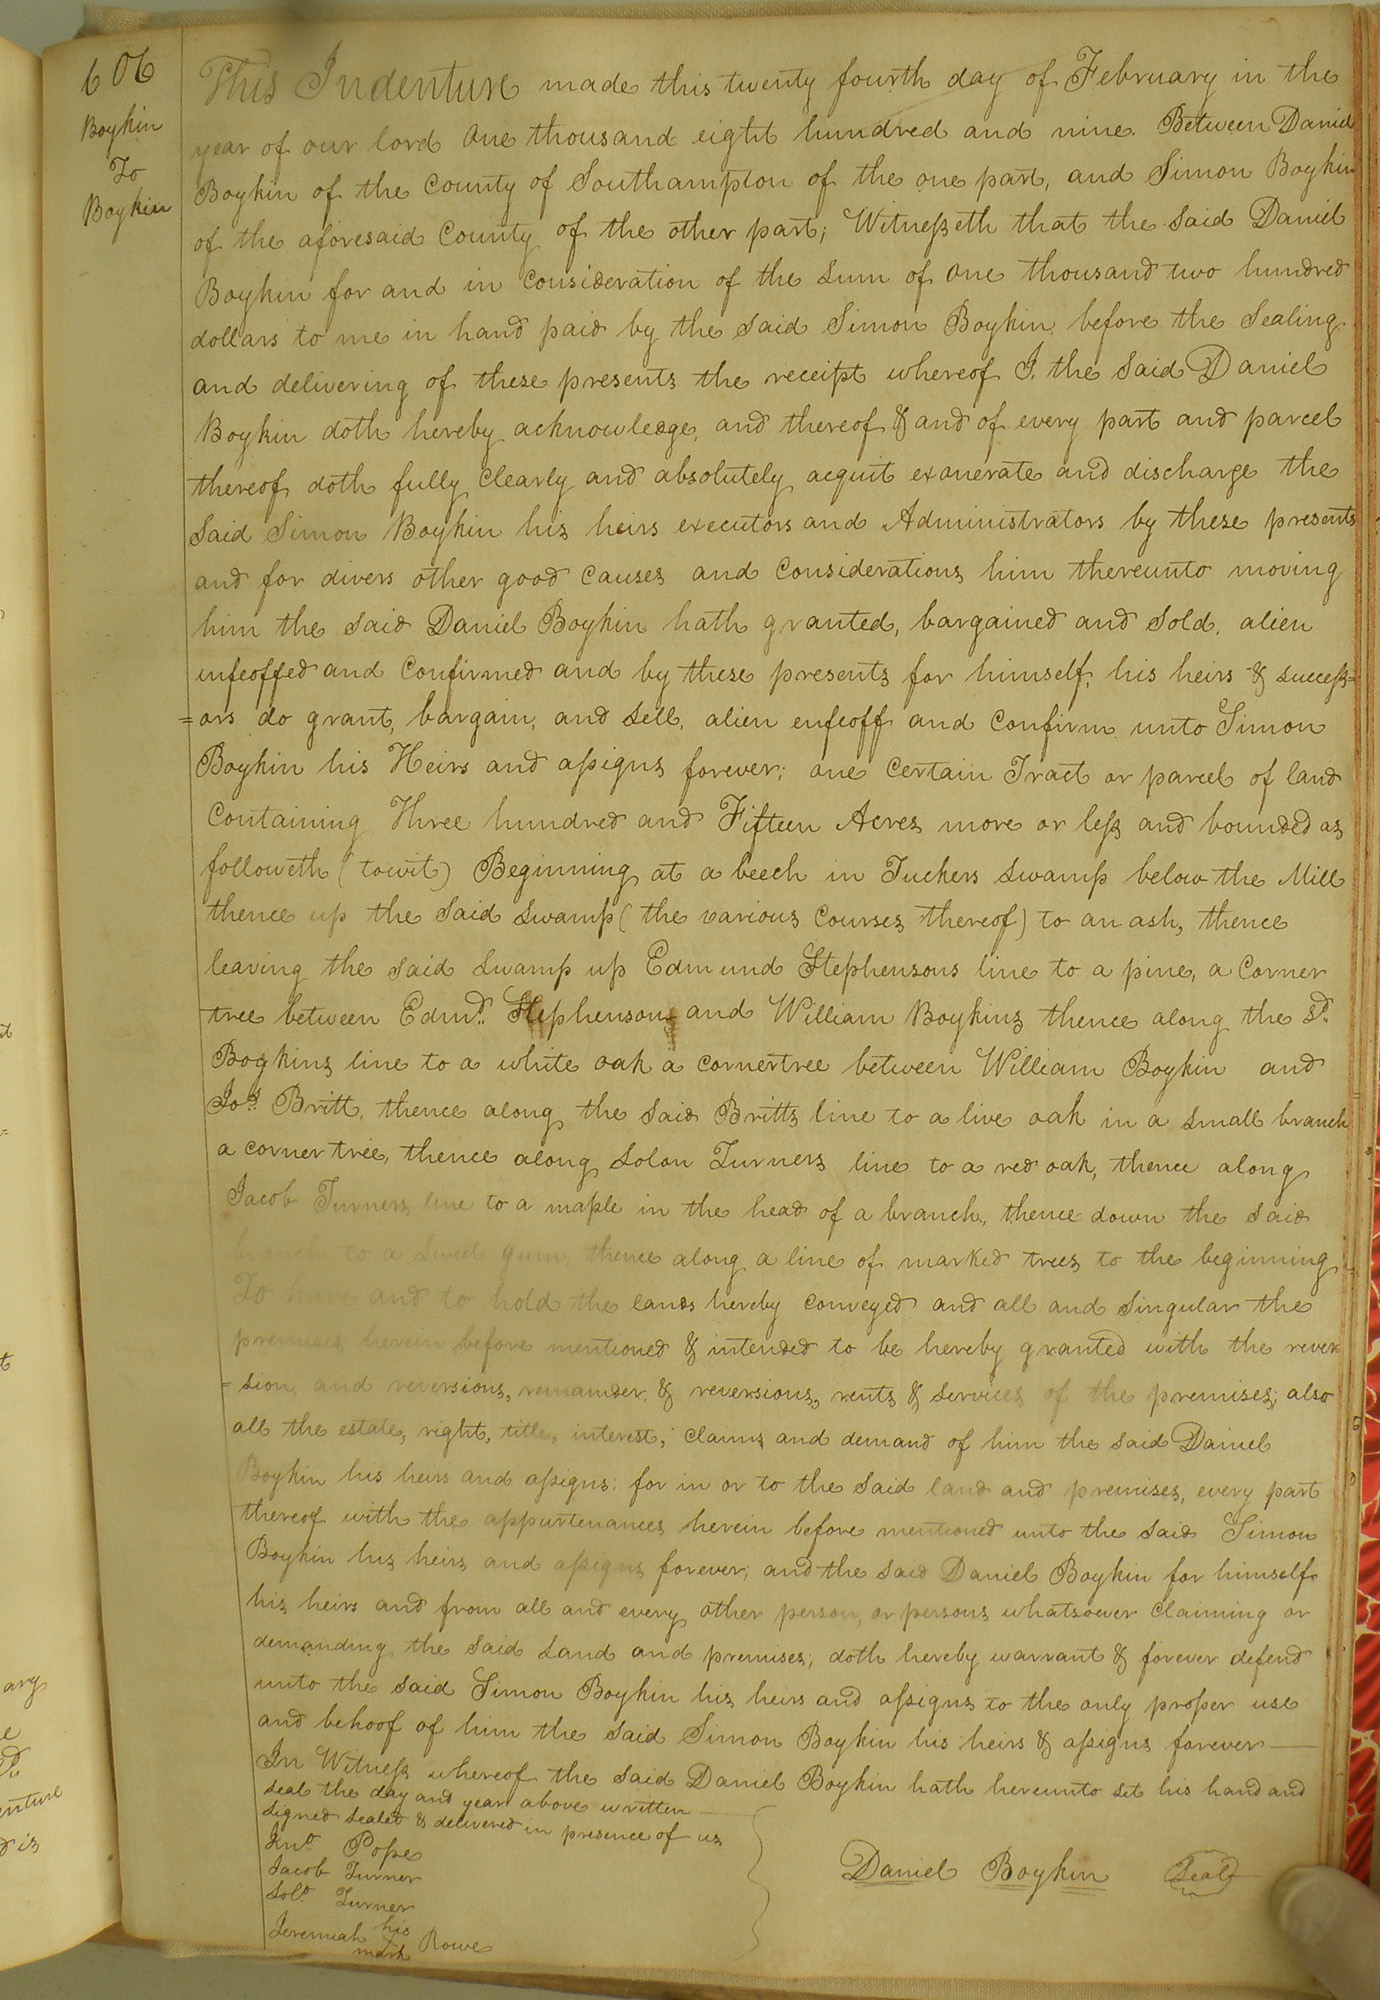 606
Boykin
To
Boykin
This Indenture made this twenty fourth day of February in the
year of our lord one thousand eight hundred and nine. Between Daniel
Boykin of the County of Southampton of the one part, and Simon Boykin
of the aforesaid County of the other part; Witnesseth that the said Daniel
Boykin for and in Consideration of the sum of one thousand two hundred
dollars to me in hand paid by the said Simon Boykin before the sealing
and delivering of these presents the receipt whereof I, the said Daniel
Boykin doth hereby acknowledge, and thereof & and of every part and parcel
thereof doth fully Clearly and absolutely acquit exonerate and discharge the
said Simon Boykin his heirs executors and Administrators by these presents
and for divers other good Causes and Considerations him thereunto moving
him the said Daniel Boykin hath granted, bargained and sold, alien
infeoffed and Confirmed and by these presents for himself, his heirs & success=
=ors do grant, bargain, and sell, alien enfeoff and Confirm unto Simon
Boykin his Heirs and assigns forever; one Certain Tract or parcel of land
Containing Three hundred and Fifteen Acres more or less and bounded as
followeth (towit) Beginning at a beech in Tuckers swamp below the Mill
thence up the said swamp (the various Courses thereof) to an ash, thence
leaving the said swamp up Edmund Stephensons line to a pine, a Corner
tree between Edmd. Stephensons and William Boykins thence along the sd.
Boykins line to a white oak a cornertree between William Boykin and
Jos. Britt, thence along the said Britts line to a live oak in a small branch
a corner tree, thence along Solon Turners line to a red oak, thence along
Jacob Turners line to a maple in the head of a branch, thence down the said
branch to a sweet gum, thence along a line of marked trees to the beginning
To have and to hold the lands hereby conveyed and all and singular the
premises herein before mentioned & intended to be hereby granted with the rever
=sion, and reversions, remainder & reversions, rents & services of the premises; also
all the estate, right, title, interest, claims and demand of him the said Daniel
Boykin his heirs and assigns: for in or to the said land and premises, every part
thereof with the appurtenances herein before mentioned unto the said Simon
Boykin his heirs and assigns forever; and the said Daniel Boykin for himself
his heirs and from all and every other person, or persons whatsoever Claiming or
demanding the said Land and premises; doth hereby warrant & forever defend
unto the said Simon Boykin his heirs and assigns to the only proper use
and behoof of him the said Simon Boykin his heirs & assigns forever
In Witness whereof the said Daniel Boykin hath hereunto set his hand and
seal the day and year above written
signed sealed & delivered in presence of us
Jno. Pope
Jacob Turner
Sol. Turner
Jeremiah his Rowe
mark
Daniel Boykin Seal